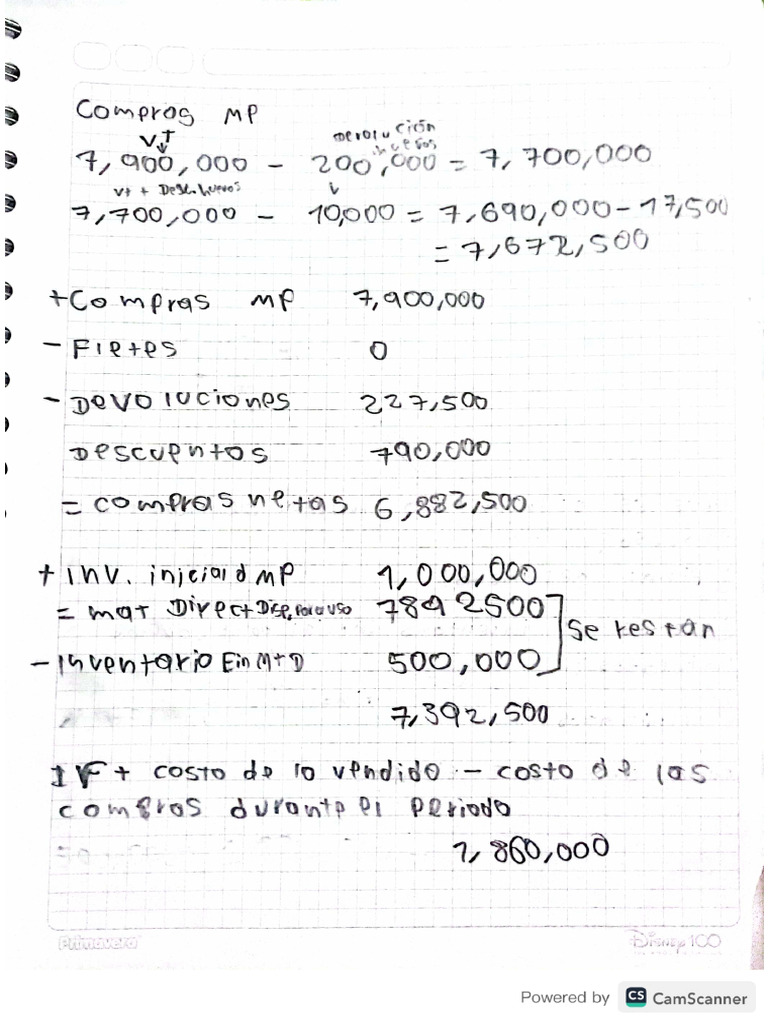 Compras MP
VT
Devolución
huesos
7,900,000 - 200,000 = 7,700,000
vt + Desc. huevos
7,700,000 - 10,000 = 7,690,000 - 17,500
= 7,672,500
+ Compras MP 7,900,000
- Fletes 0
- Devoluciones 227,500
Descuentos 790,000
= compras netas 6,882,500
+ Inv. inicial d MP 1,000,000
= mat Direct Disp. para uso 7892500
se restan
- Inventario Fin M+D 500,000
7,392,500
IF + costo de lo vendido - costo de las
compras durante el periodo
1,860,000
Primavera
Disney 100
Powered by CS CamScanner